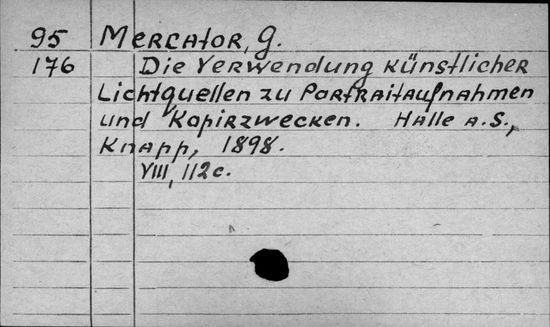 95 Mercator, G.
176 Die Verwendung künstlicher
Lichtquellen zu Portraitaufnahmen
und Kopirzwecken. Halle a.S.,
Knapp, 1898.
VIII, 112c.